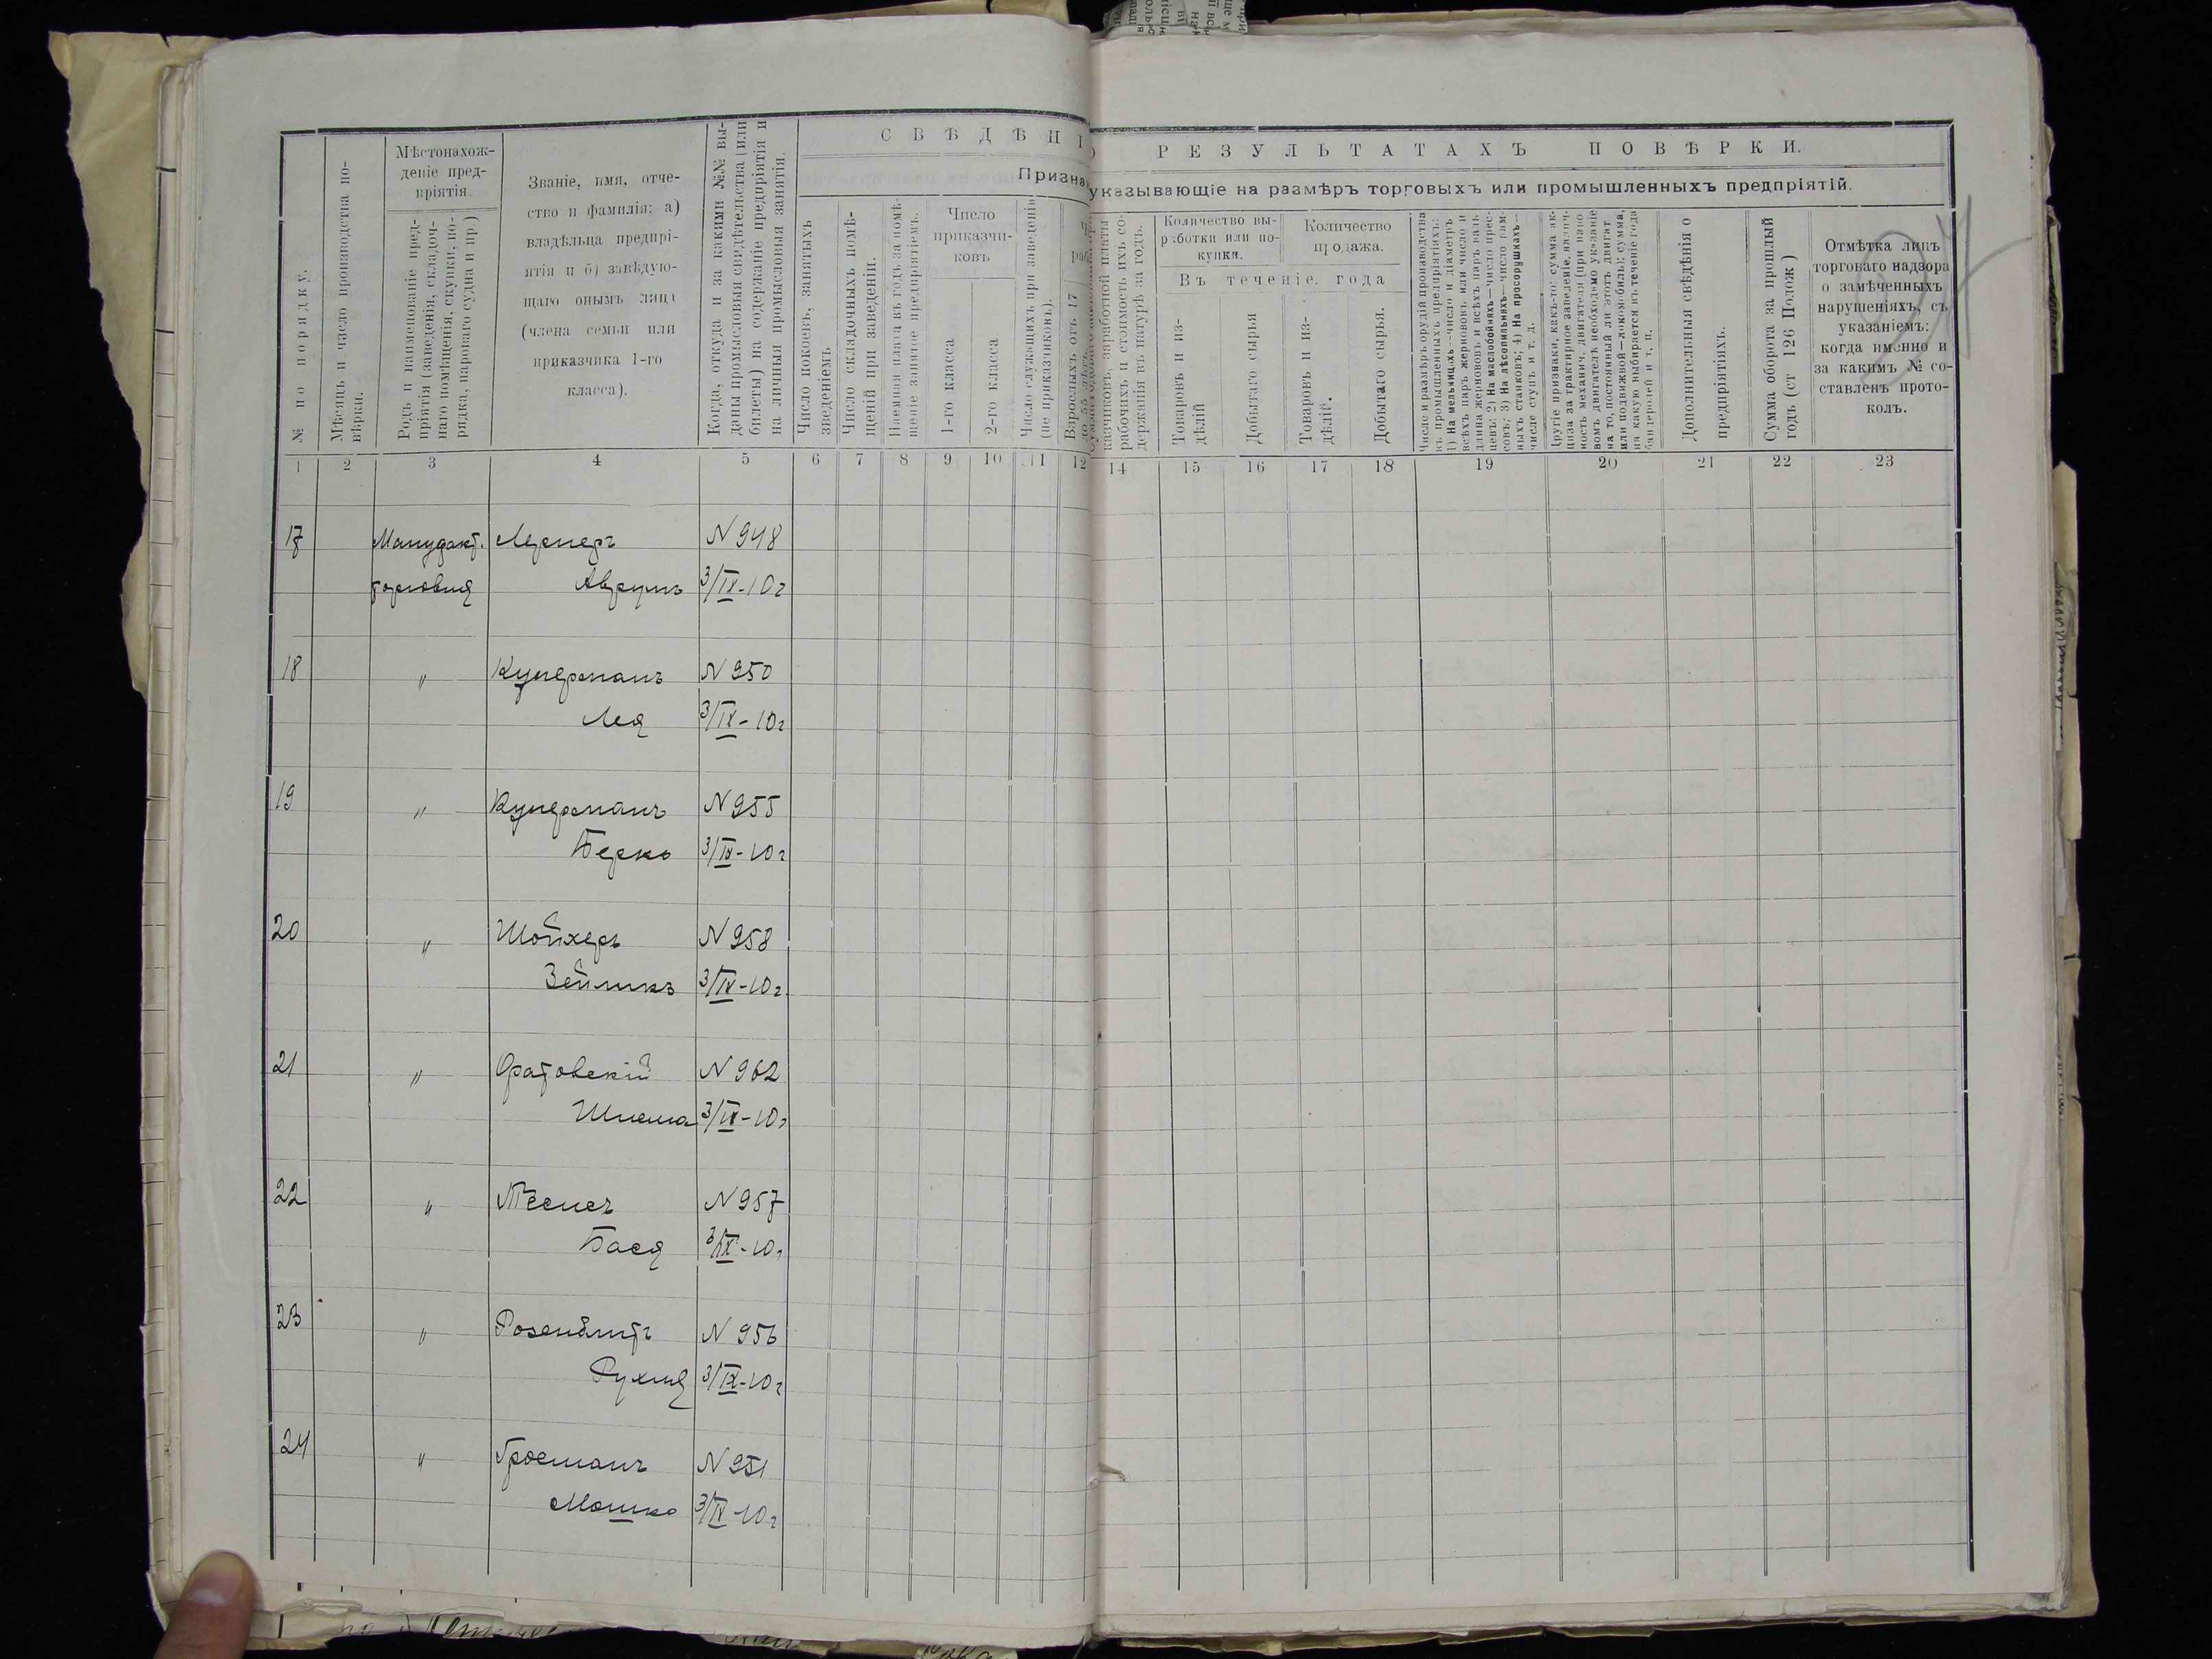 СВѢДѢНІ
О РЕЗУЛЬТАТАХЪ ПОВѢРКИ.
Призна
указывающіе на размѣръ торговыхъ или промышленныхъ предпріятій.
№ по порядку.
Мѣсяцъ и число производства по-
вѣрки.
Мѣстонахож-
деніе пред-
пріятія.
Родъ и наименованіе пред-
пріятія (заведенія, складоч-
наго помѣщенія, скупки; по-
рядка, парового судна и пр.)
Званіе, имя, отче-
ство и фамилія: а)
владѣльца предпрі-
ятія и б) завѣдую-
щаго онымъ лица
(члена семьи или
приказчика 1-го
класса).
Когда, откуда и за какими №№ вы-
даны промысловыя свидѣтельства (или
билеты) на содержаніе предпріятія и
на личныя промысловыя занятія.
Число покоевъ, занятыхъ
зведеніемъ
Число складочныхъ помѣ-
щеній при заведеніи.
Наемная плата въ годъ за помѣ-
щеніе занятое предпріятіемъ.
Число
приказчи-
ковъ
1-го класса
2-го класса
Число служащихъ при заведеніи
(не приказчиковъ).
Взрослыхъ отъ 17
казчиковъ, заработной платы
рабочихъ и стоимость ихъ со-
держанія въ натурѣ за годъ.
Количество вы-
работки или по-
купки.
Количество
продажа.
Въ теченіе года
Товаровъ и из-
дѣлій
Добытаго сырья
Товаровъ и из-
дѣлій.
Добытаго сырья.
Число и размѣръ орудій производства
въ промышленныхъ предпріятіяхъ:
1) На мельницахъ—число и діаметръ
всѣхъ паръ жернововъ или число и
длина жернововъ и всѣхъ паръ валь
цевъ; 2) На маслобойняхъ—число прес-
совъ; 3) На лѣсопильняхъ—число рам-
ныхъ станковъ; 4) На просорушкахъ—
число ступъ и т. д.
Другіе признаки, какъ-то: сумма ак-
циза за трактирное заведеніе, налич-
ность механич. двигателя (при паро
вомъ двигателѣ необходимо указаніе
на то, постоянный ли этотъ двигат
или подвижной—локомобиль); сумма,
на какую выбирается въ теченіе года
бандеролей и т. п.
Дополнительныя свѣдѣнія о
предпріятіяхъ.
Сумма оборота за прошлый
годъ (ст 126 Полож)
Отмѣтка лицъ
торговаго надзора
о замѣченныхъ
нарушеніяхъ, съ
указаніемъ:
когда именно и
за какимъ № со-
ставленъ прото-
колъ.
1 2 3 4 5 6 7 8 9 10 11 12 14 15 16 17 18 19 20 21 22 23
17 Мануфакт. Лернеръ N 948
торговля Аврумъ 3/IX-10 г
18 " Куперманъ N 950
Лея 3/IX-10 г
19 " Куперманъ N 955
Берко 3/IX-10 г
20 " Шойхеръ N 958
Зейликъ 3/IX-10 г
21 " Оратовскій N 962
Шлема 3/IX-10 г
22 " N 957
Бася 3/IX-10 г
23 " Розенблитъ N 956
Рухля 3/IX-10 г
24 " Гросманъ N 951
Мошко 3/IX-10 г